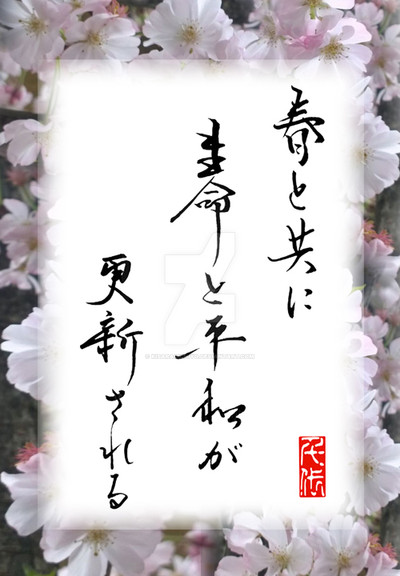 春と共に
生命と平和が
更新される